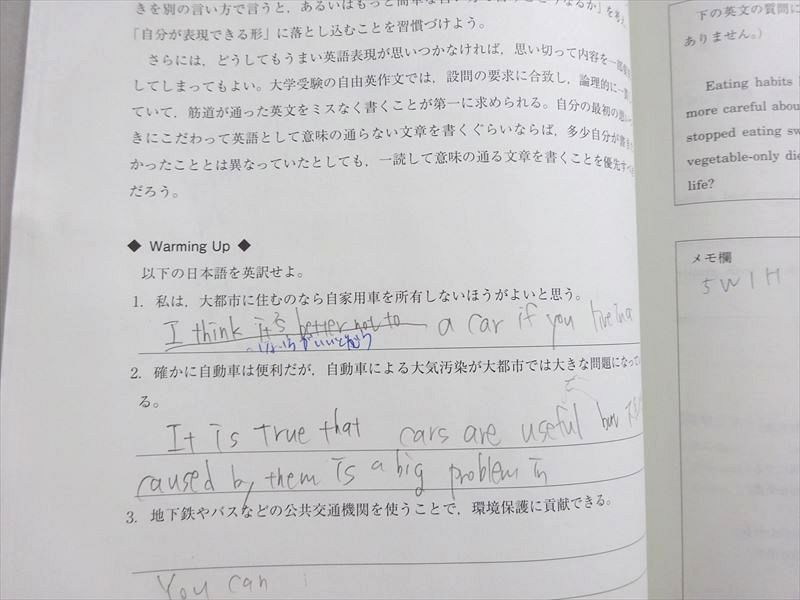 きを別の言い方で言うと，あるいはもっと簡単な
「自分が表現できる形」に落とし込むことを習慣づけよう。
さらには，どうしてもうまい英語表現が思いつかなければ，思い切って内容を一部
してしまってもよい。大学受験の自由英作文では，設問の要求に合致し，論理的に一貫し
ていて，筋道が通った英文をミスなく書くことが第一に求められる。自分の最初の思い
きにこだわって英語として意味の通らない文章を書くぐらいならば，多少自分が書き
かったこととは異なっていたとしても，一読して意味の通る文章を書くことを優先すべき
だろう。
◆ Warming Up ◆
以下の日本語を英訳せよ。
1. 私は，大都市に住むのなら自家用車を所有しないほうがよいと思う。
I think it's better not to a car if you live in a
2. 確かに自動車は便利だが，自動車による大気汚染が大都市では大きな問題になってい
る。
It is true that cars are useful but
caused by them is a big problem in
3. 地下鉄やバスなどの公共交通機関を使うことで，環境保護に貢献できる。
You can
下の英文の質問に
ありません。)
Eating habits
more careful abou
stopped eating sw
vegetable-only die
life?
メモ欄
5W1H